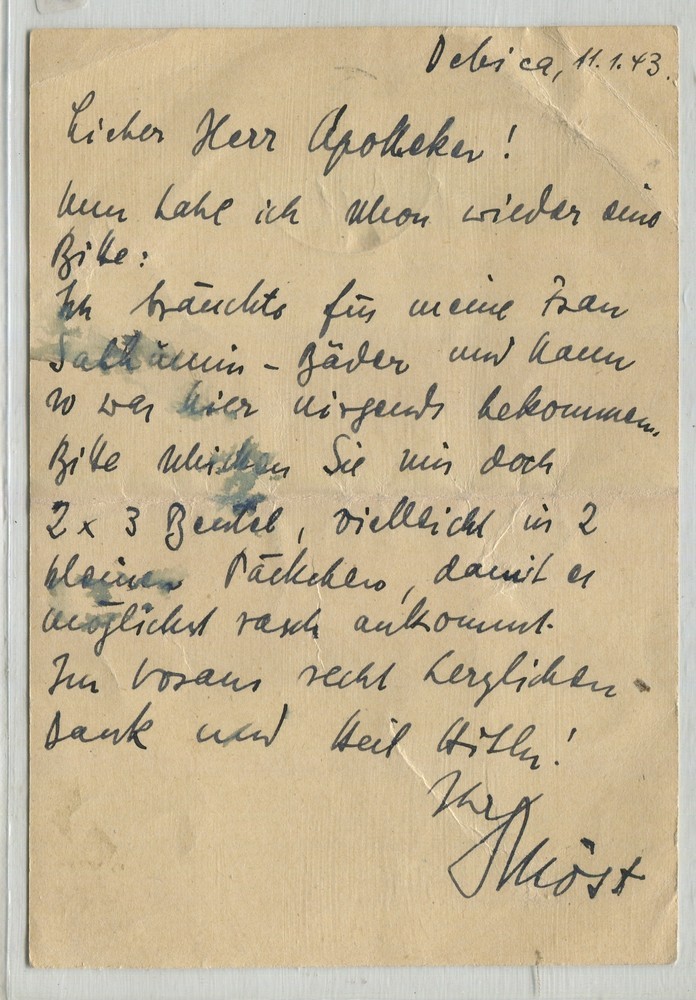 Debica, 11.1.43.
Lieber Herr Apotheker!
Nun habe ich schon wieder eine
Bitte:
Ich bräuchte für meine Frau
Salhumin - Bäder und kann
so was hier nirgends bekommen.
Bitte schicken Sie mir doch
2 x 3 Beutel, vielleicht in 2
kleinen Päckchen, damit es
möglichst rasch ankommt.
Im voraus recht herzlichen
Dank und Heil Hitler!
Ihr